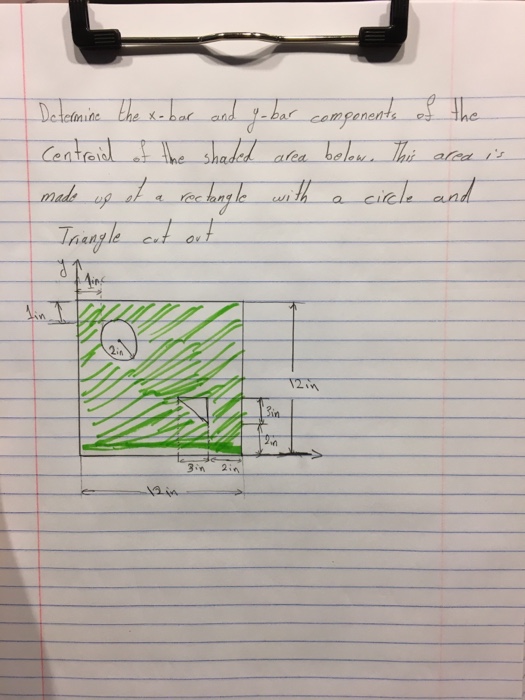 Determine the x-bar and y-bar components of the
Centroid of the shaded area below. This area is
made up of a rectangle with a circle and
Triangle cut out
y
1in
1in
2in
12in
3in
2in
3in 2in
12in